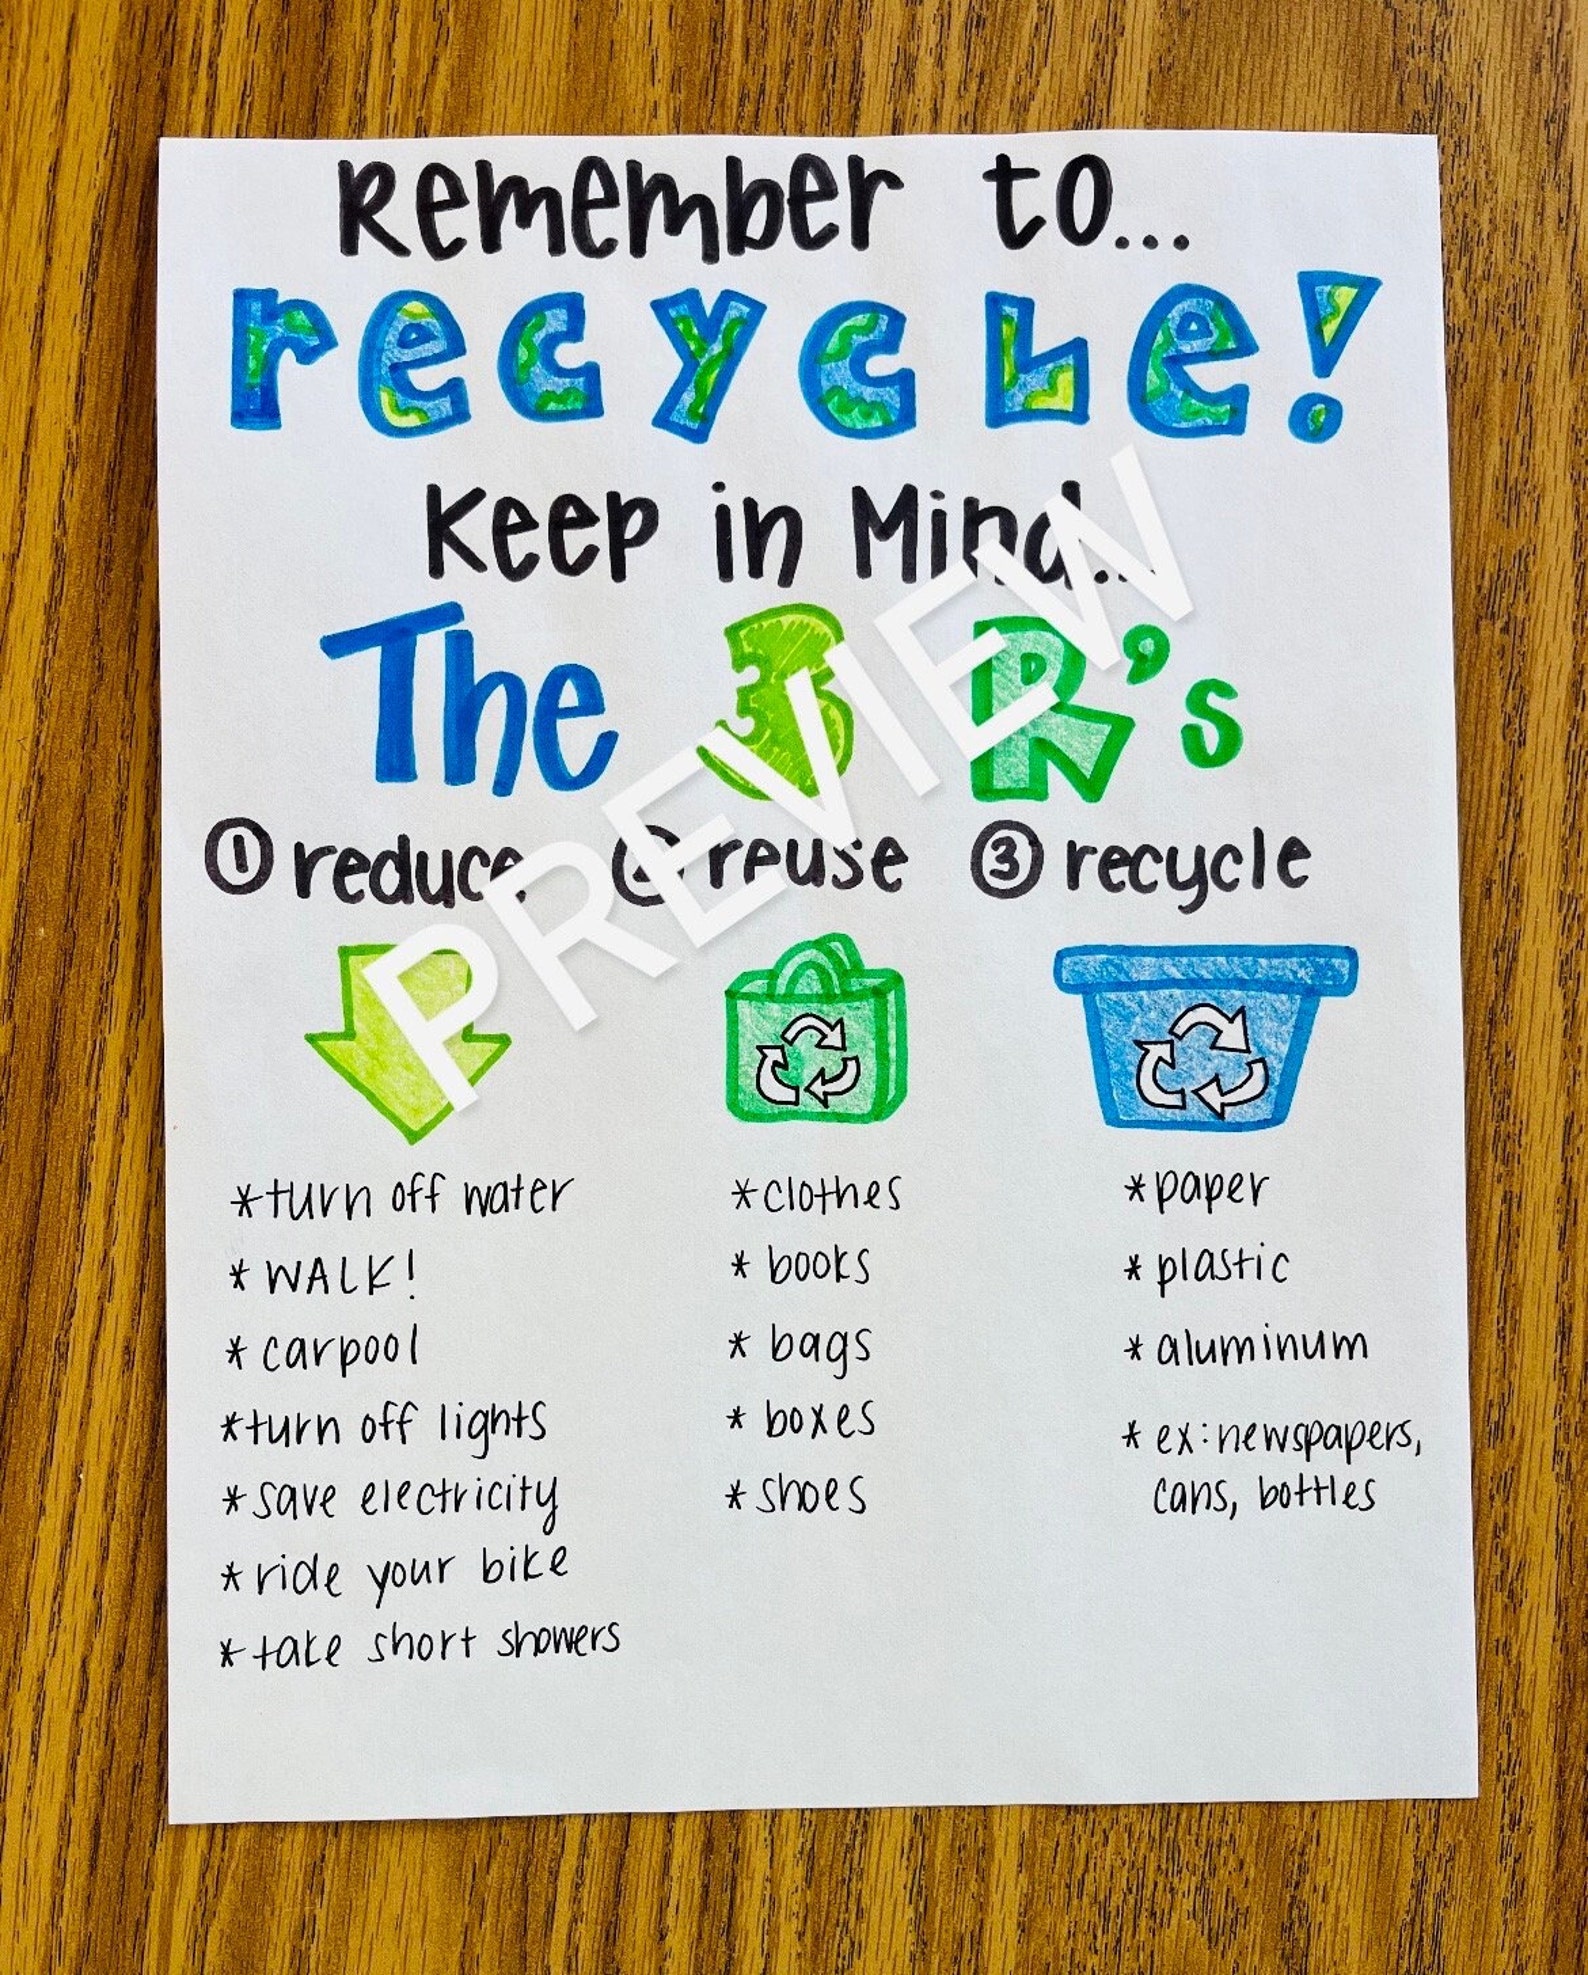 Remember to...
recycle!
Keep in Mind...
The 3 R's
① reduce ② reuse ③ recycle
*turn off water
* WALK!
* carpool
*turn off lights
*save electricity
*ride your bike
*take short showers
*clothes
* books
* bags
* boxes
*shoes
*paper
*plastic
*aluminum
* ex: newspapers,
cans, bottles
PREVIEW